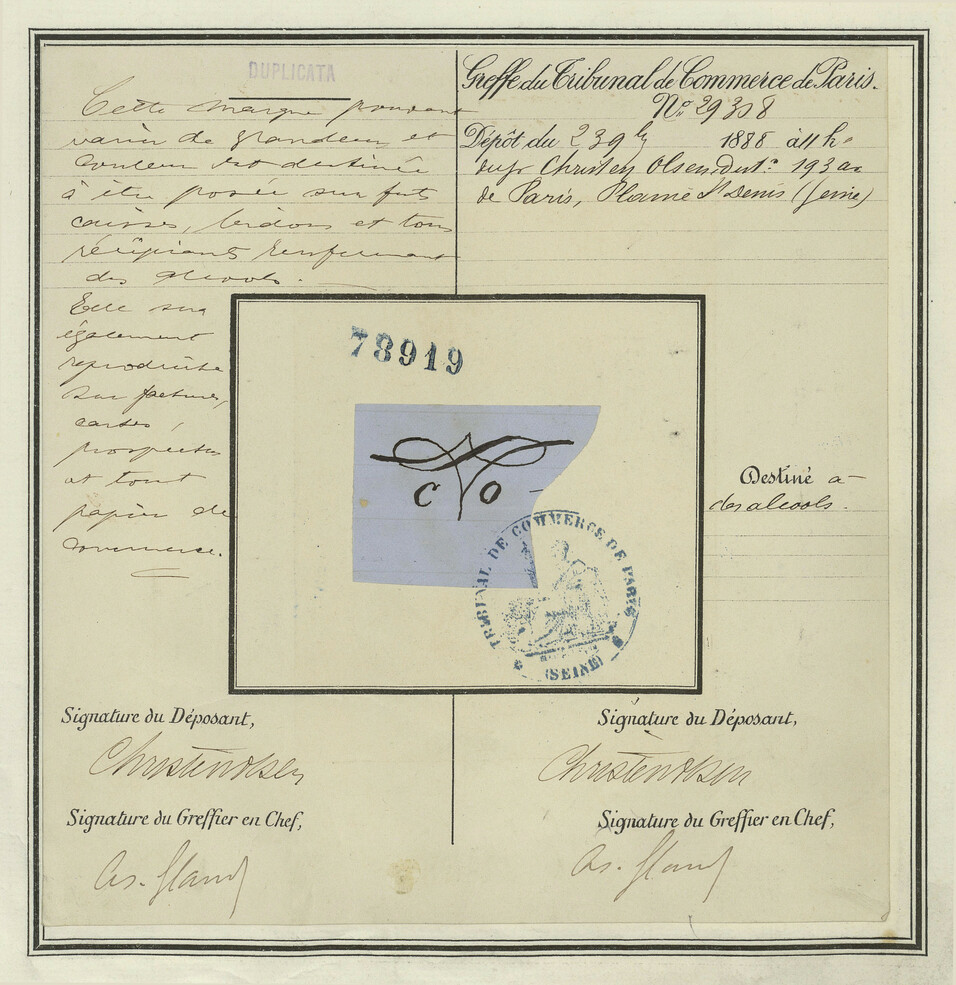 DUPLICATA
Cette marque pouvant
varier de grandeur et
couleur est destinée
à être posée sur fûts
caisses, bidons et tous
récipients renfermant
des alcools.
Elle sera
également
reproduite
sur factures,
cartes,
prospectus
et tout
papier de
commerce.
Greffe du Tribunal de Commerce de Paris.
No 29308
Dépôt du 1888 à 11 h
Christen Olsen, 193 av
de Paris, Plaine St Denis (Seine)
78919
C O
TRIBUNAL DE COMMERCE DE PARIS
(SEINE)
Destiné à
des alcools.
Signature du Déposant,
Christen Olsen
Signature du Greffier en Chef,
Signature du Déposant,
Christen Olsen
Signature du Greffier en Chef,